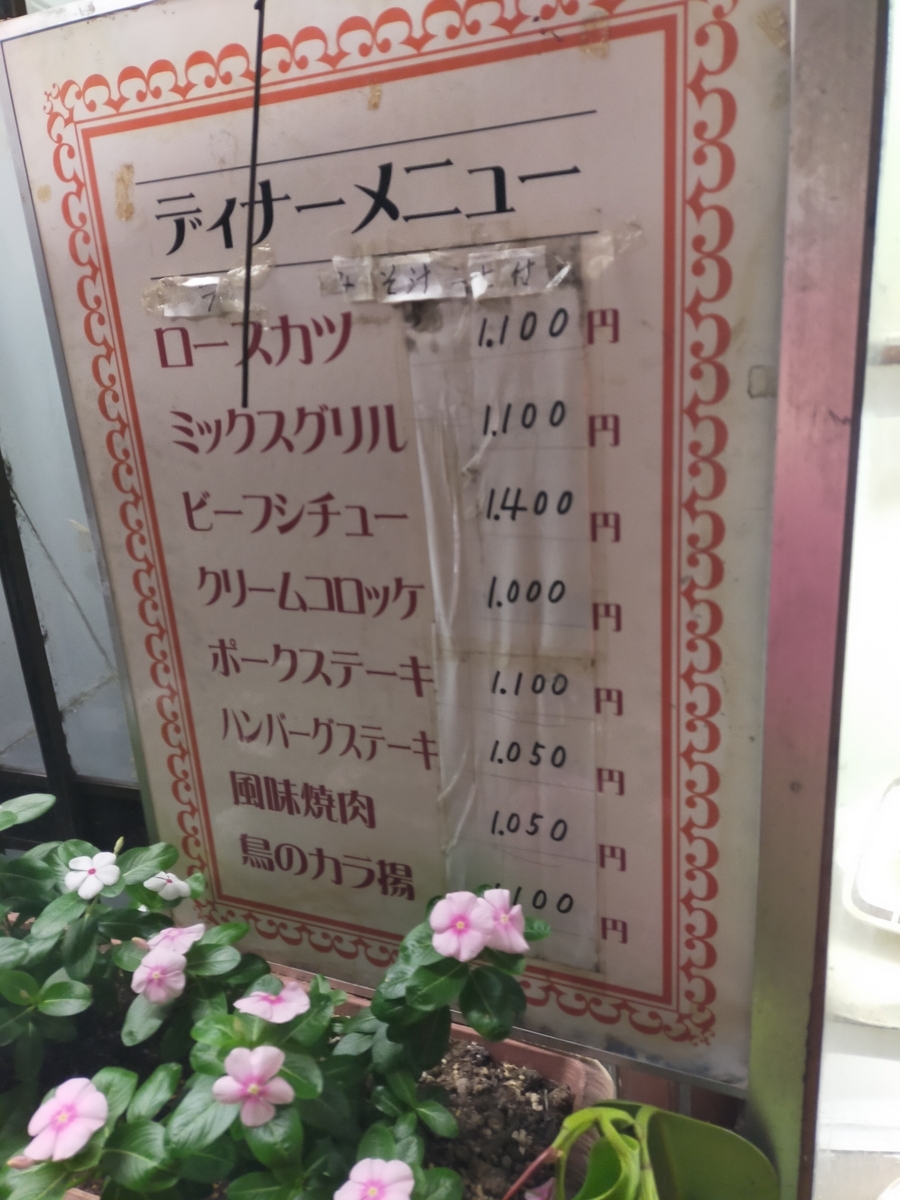 ディナーメニュー
みそ汁 付
ロースカツ 1.100円
ミックスグリル 1.100円
ビーフシチュー 1.400円
クリームコロッケ 1.000円
ポークステーキ 1.100円
ハンバーグステーキ 1.050円
風味焼肉 1.050円
鳥のカラ揚 100円